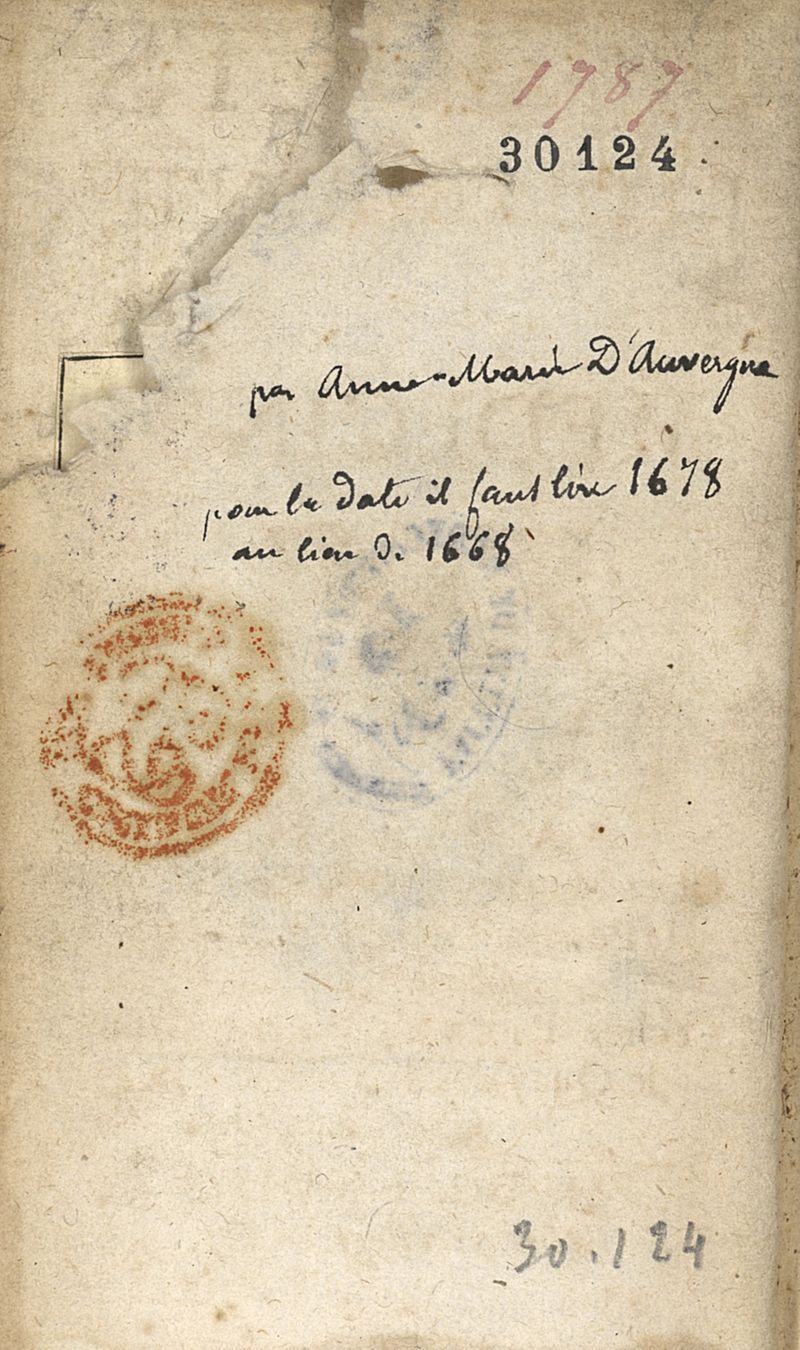 1787
30124
par Anne-Marie D'Auvergne
pour la date il faut lire 1678
au lieu de 1668
30.124